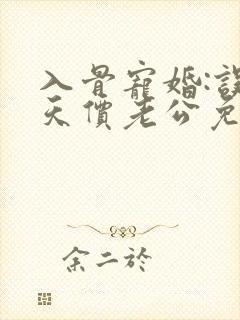 入骨寵婚:誤
天價老公免
余二於